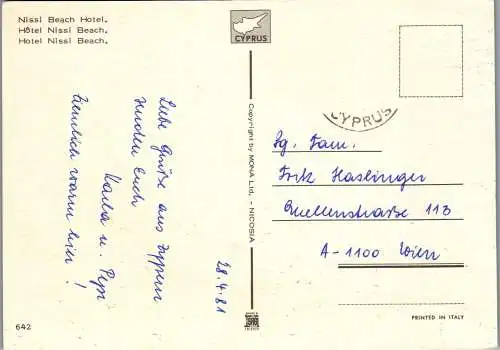 Nissi Beach Hotel.
Hôtel Nissi Beach.
Hotel Nissi Beach.
CYPRUS
Liebe Grüße aus Zypern
senden Euch
u. Pepi
Ziemlich warm hier!
28.4.81
Copyright by MONA Ltd. - NICOSIA
CYPRUS
Sg. Fam.
Fritz Haslinger
Quellenstraße 113
A-1100 Wien
642
PRINTED IN ITALY